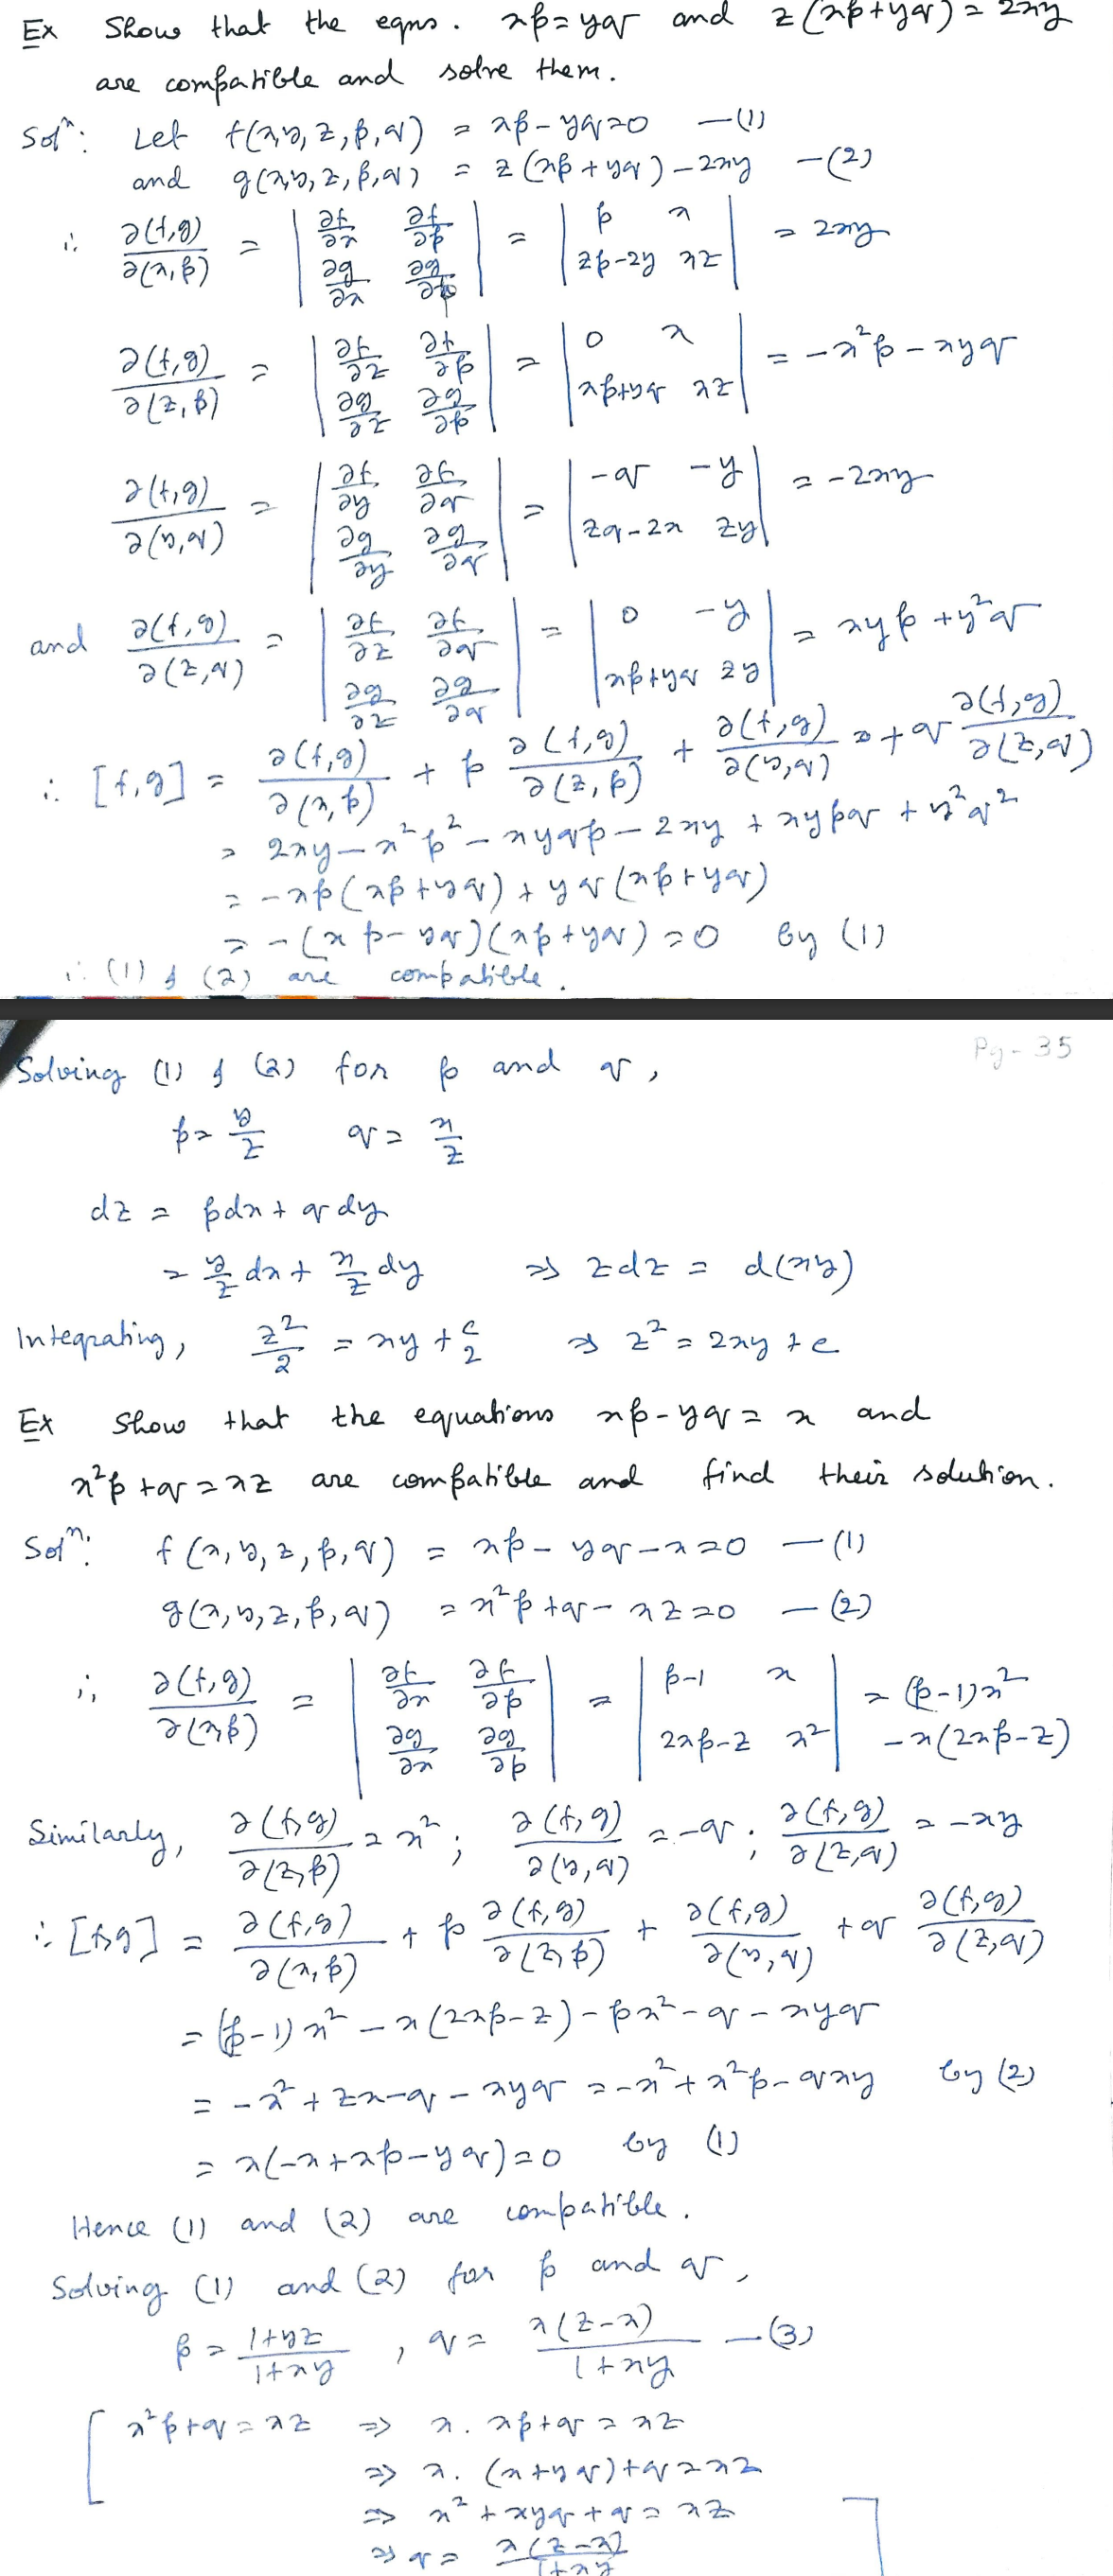 Ex Show that the eqns. xp=yq and z(xp+yq)=2xy
are compatible and solve them.
Solⁿ: Let f(x,y,z,p,q) = xp-yq=0 —(1)
and g(x,y,z,p,q) = z(xp+yq)-2xy —(2)
∴ ∂(f,g)/∂(x,p) = | ∂f/∂x ∂f/∂p ; ∂g/∂x ∂g/∂p | = | p x ; zp-2y xz | = 2xy
∂(f,g)/∂(z,p) = | ∂f/∂z ∂f/∂p ; ∂g/∂z ∂g/∂p | = | 0 x ; xp+yq xz | = -x²p-xyq
∂(f,g)/∂(y,q) = | ∂f/∂y ∂f/∂q ; ∂g/∂y ∂g/∂q | = | -q -y ; zq-2x zy | = -2xy
and ∂(f,g)/∂(z,q) = | ∂f/∂z ∂f/∂q ; ∂g/∂z ∂g/∂q | = | 0 -y ; xp+yq zy | = xyp+y²q
∴ [f,g] = ∂(f,g)/∂(x,p) + p ∂(f,g)/∂(z,p) + ∂(f,g)/∂(y,q) + q ∂(f,g)/∂(z,q)
= 2xy-x²p²-xyqp-2xy+xypq+y²q²
= -xp(xp+yq)+yq(xp+yq)
= -(xp-yq)(xp+yq)=0 by (1)
∴ (1) & (2) are compatible.
Pg-35
Solving (1) & (2) for p and q,
p= y/z q= x/z
dz = pdx+qdy
= y/z dx+ x/z dy ⇒ zdz = d(xy)
Integrating, z²/2 = xy+ c/2 ⇒ z²=2xy+c
Ex Show that the equations xp-yq=x and
x²p+q=xz are compatible and find their solution.
Solⁿ: f(x,y,z,p,q) = xp-yq-x=0 —(1)
g(x,y,z,p,q) = x²p+q-xz=0 —(2)
∴ ∂(f,g)/∂(x,p) = | ∂f/∂x ∂f/∂p ; ∂g/∂x ∂g/∂p | = | p-1 x ; 2xp-z x² | = (p-1)x² -x(2xp-z)
Similarly, ∂(f,g)/∂(z,p) = x²; ∂(f,g)/∂(y,q) = -q; ∂(f,g)/∂(z,q) = -xy
∴ [f,g] = ∂(f,g)/∂(x,p) + p ∂(f,g)/∂(z,p) + ∂(f,g)/∂(y,q) + q ∂(f,g)/∂(z,q)
= (p-1)x²-x(2xp-z)-px²-q-xyq
= -x²+zx-q-xyq = -x²+x²p-qxy by (2)
= x(-x+xp-yq)=0 by (1)
Hence (1) and (2) are compatible.
Solving (1) and (2) for p and q,
p = (1+yz)/(1+xy), q = x(z-x)/(1+xy) —(3)
[ x²p+q=xz ⇒ x.xp+q=xz
⇒ x.(x+yq)+q=xz
⇒ x²+xyq+q=xz
⇒ q= x(z-x)/(1+xy) ]